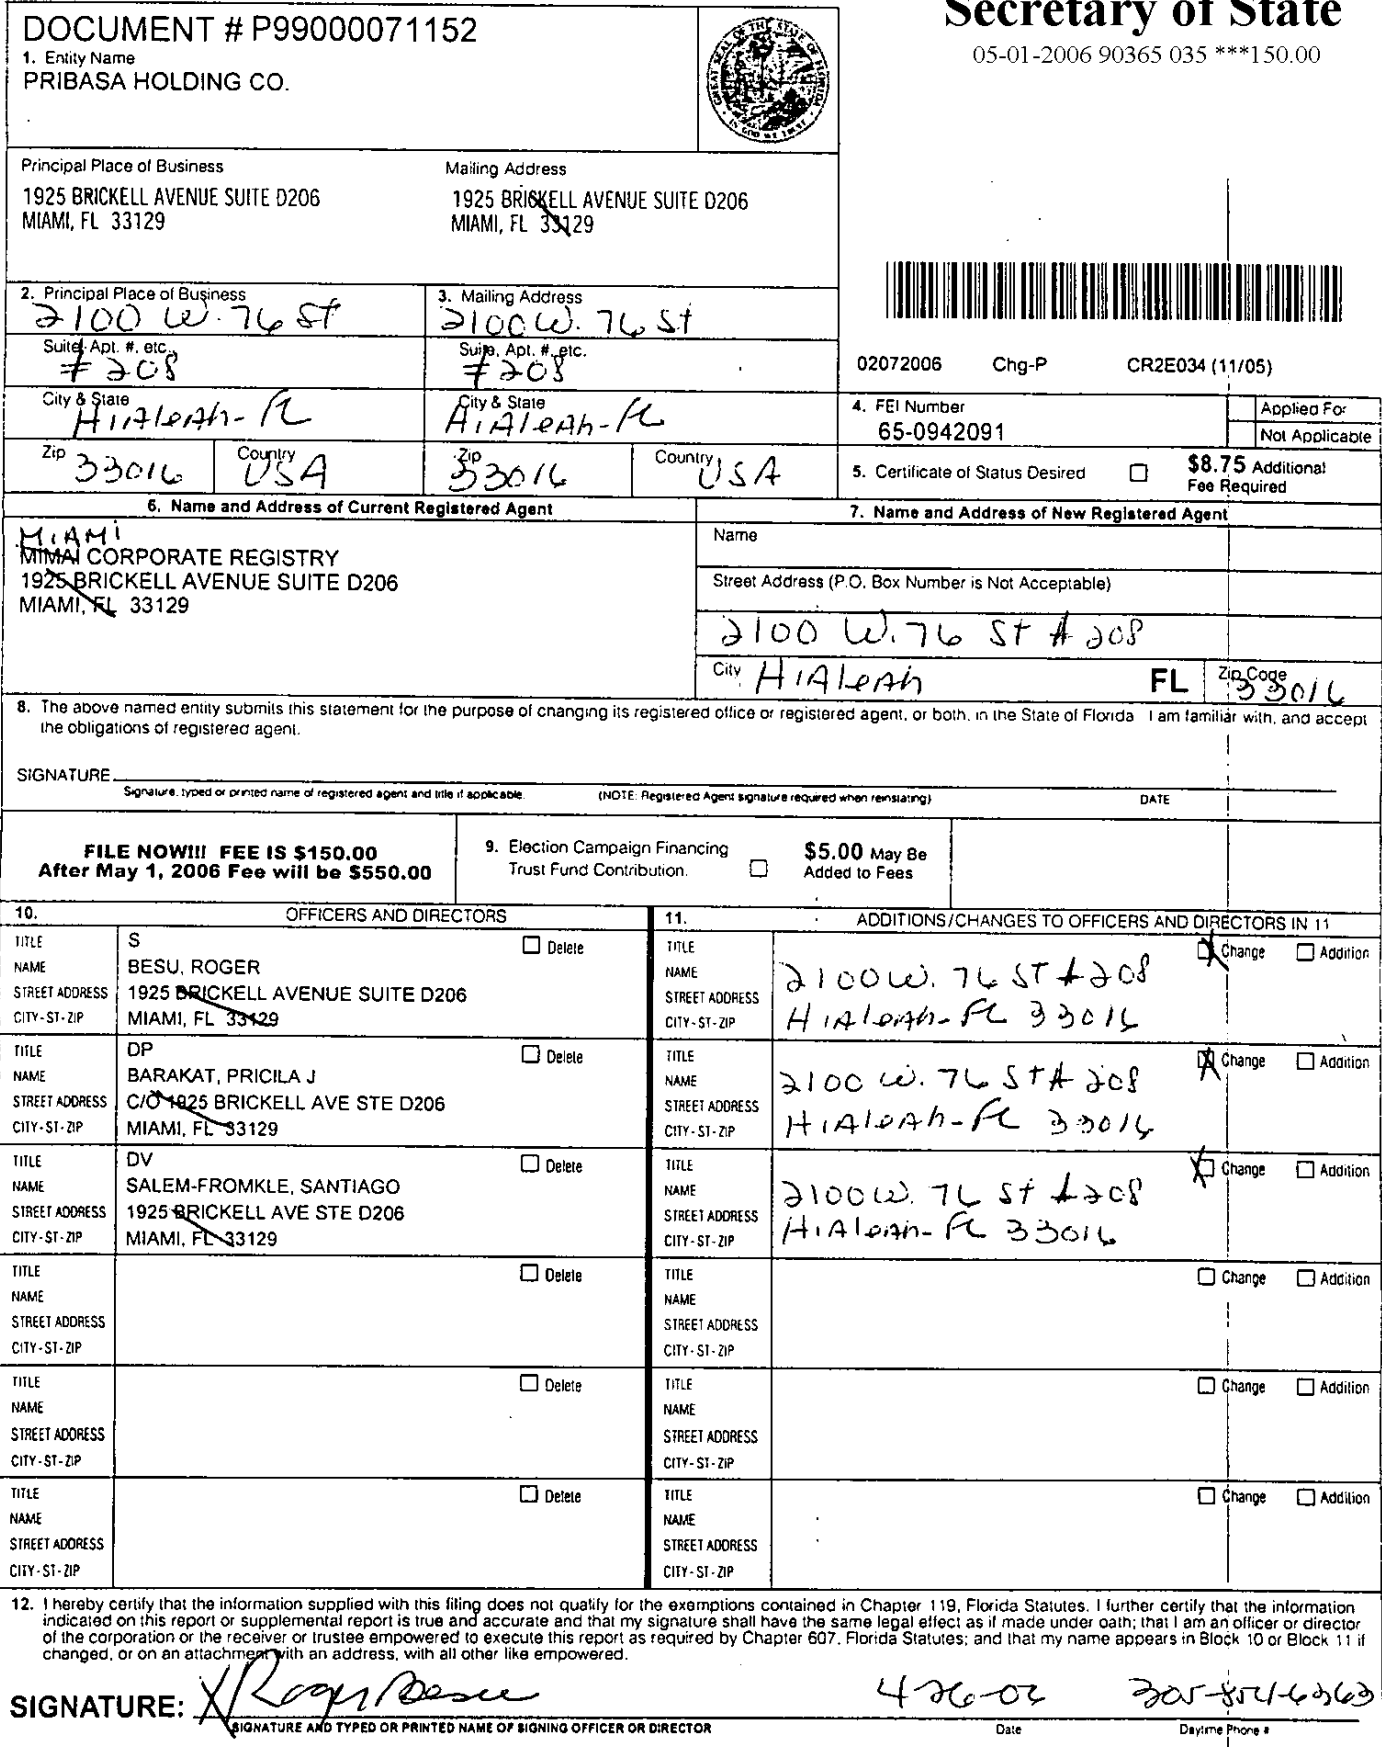 Secretary of State
05-01-2006 90365 035 ***150.00
DOCUMENT # P99000071152
1. Entity Name
PRIBASA HOLDING CO.
GREAT SEAL OF THE STATE OF FLORIDA
IN GOD WE TRUST
Principal Place of Business
1925 BRICKELL AVENUE SUITE D206
MIAMI, FL 33129
Mailing Address
1925 BRICKELL AVENUE SUITE D206
MIAMI, FL 33129
2. Principal Place of Business
2100 W. 76 St
3. Mailing Address
2100 W. 76 St
Suite, Apt. #, etc.
# 208
Suite, Apt. #, etc.
# 208
City & State
HiAleAh-FL
City & State
HiAleAh-FL
Zip 33016
Country USA
Zip 33016
Country USA
02072006 Chg-P CR2E034 (11/05)
4. FEI Number
65-0942091
Applied For
Not Applicable
5. Certificate of Status Desired
$8.75 Additional
Fee Required
6. Name and Address of Current Registered Agent
MiAMi
MIMAI CORPORATE REGISTRY
1925 BRICKELL AVENUE SUITE D206
MIAMI, FL 33129
7. Name and Address of New Registered Agent
Name
Street Address (P.O. Box Number is Not Acceptable)
2100 W. 76 St # 208
City HiAleAh FL Zip Code 33016
8. The above named entity submits this statement for the purpose of changing its registered office or registered agent, or both, in the State of Florida I am familiar with, and accept
the obligations of registered agent.
SIGNATURE
Signature, typed or printed name of registered agent and title if applicable. (NOTE: Registered Agent signature required when reinstating) DATE
FILE NOW!!! FEE IS $150.00
After May 1, 2006 Fee will be $550.00
9. Election Campaign Financing
Trust Fund Contribution.
$5.00 May Be
Added to Fees
10. OFFICERS AND DIRECTORS
11. ADDITIONS/CHANGES TO OFFICERS AND DIRECTORS IN 11
TITLE S Delete
NAME BESU, ROGER
STREET ADDRESS 1925 BRICKELL AVENUE SUITE D206
CITY-ST-ZIP MIAMI, FL 33129
TITLE X Change Addition
NAME 2100 W. 76 ST # 208
STREET ADDRESS
CITY-ST-ZIP HiAleAh-FL 33016
TITLE DP Delete
NAME BARAKAT, PRICILA J
STREET ADDRESS C/O 1925 BRICKELL AVE STE D206
CITY-ST-ZIP MIAMI, FL 33129
TITLE X Change Addition
NAME 2100 W. 76 St # 208
STREET ADDRESS
CITY-ST-ZIP HiAleAh-FL 33016
TITLE DV Delete
NAME SALEM-FROMKLE, SANTIAGO
STREET ADDRESS 1925 BRICKELL AVE STE D206
CITY-ST-ZIP MIAMI, FL 33129
TITLE X Change Addition
NAME 2100 W. 76 St # 208
STREET ADDRESS
CITY-ST-ZIP HiAleAh-FL 33016
TITLE Delete
NAME
STREET ADDRESS
CITY-ST-ZIP
TITLE Change Addition
NAME
STREET ADDRESS
CITY-ST-ZIP
TITLE Delete
NAME
STREET ADDRESS
CITY-ST-ZIP
TITLE Change Addition
NAME
STREET ADDRESS
CITY-ST-ZIP
TITLE Delete
NAME
STREET ADDRESS
CITY-ST-ZIP
TITLE Change Addition
NAME
STREET ADDRESS
CITY-ST-ZIP
12. I hereby certify that the information supplied with this filing does not qualify for the exemptions contained in Chapter 119, Florida Statutes. I further certify that the information
indicated on this report or supplemental report is true and accurate and that my signature shall have the same legal effect as if made under oath; that I am an officer or director
of the corporation or the receiver or trustee empowered to execute this report as required by Chapter 607, Florida Statutes; and that my name appears in Block 10 or Block 11 if
changed, or on an attachment with an address, with all other like empowered.
SIGNATURE: X Roger Besu 4-26-06 305-854-6363
SIGNATURE AND TYPED OR PRINTED NAME OF SIGNING OFFICER OR DIRECTOR Date Daytime Phone #